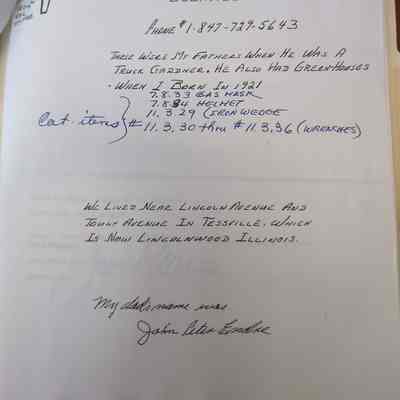 Phone # 1-847-729-5643
These Were My Fathers When He Was A
Truck Gardner. He Also Had Greenhouses
- When I Born In 1921
7.8.33 Gas Mask
7.8.34 Helmet
11.3.29 (Iron Wedge
Cat. items # 11.3.30 thru # 11.3.36 (Wrenches)
We Lived Near Lincoln Avenue And
Touhy Avenue In Tessville. Which
Is Now Lincolnwood Illinois.
My dads name was
John Peter